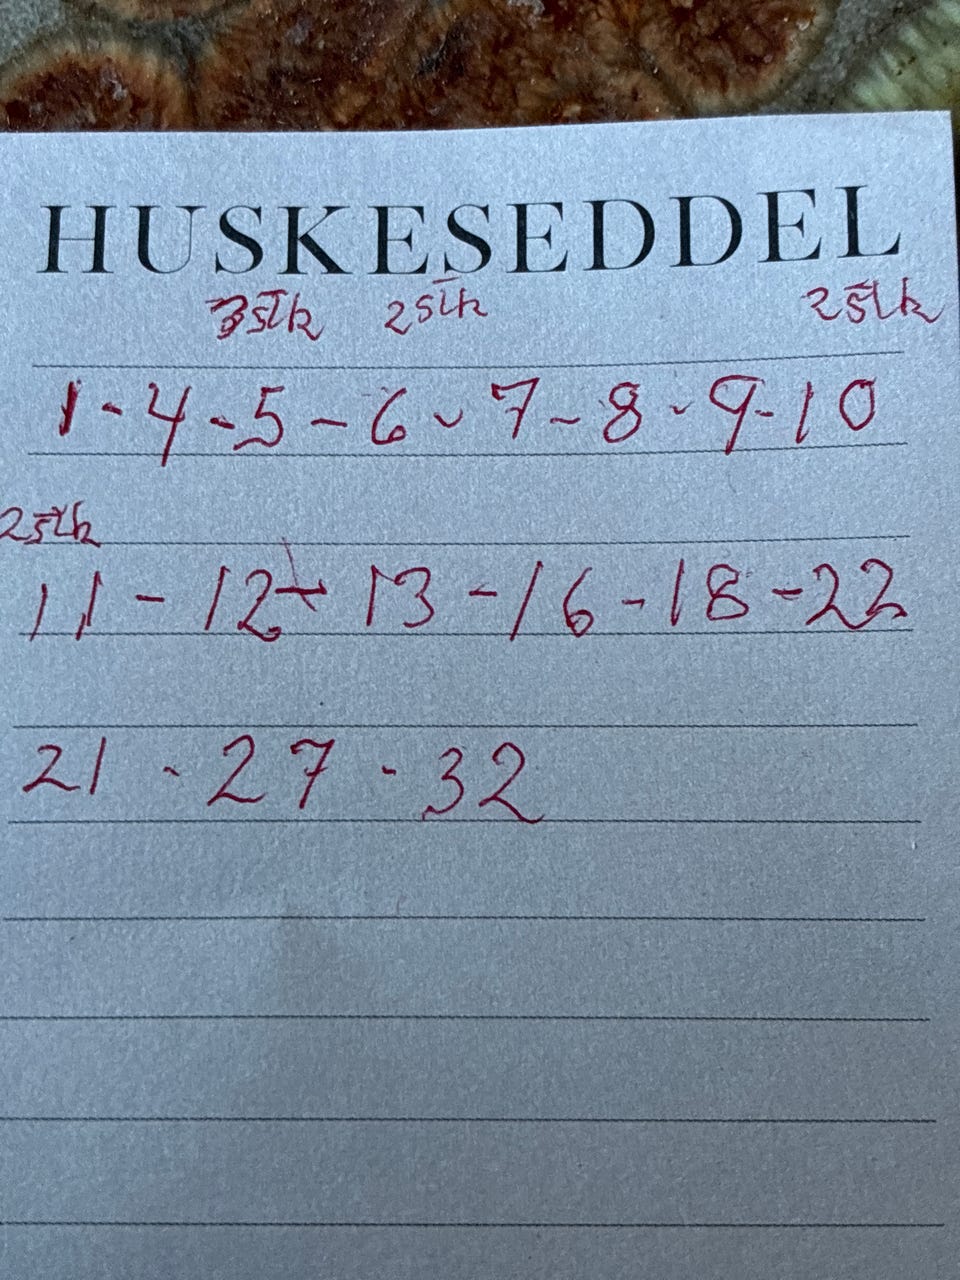 HUSKESEDDEL
3stk 2stk 2stk
1 - 4 - 5 - 6 - 7 - 8 - 9 - 10
2stk
11 - 12 - 13 - 16 - 18 - 22
21 - 27 - 32